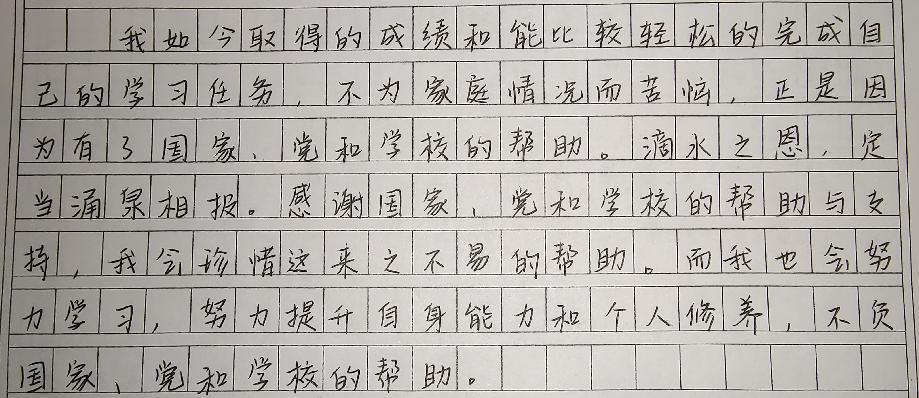 我如今取得的成绩和能比较轻松的完成自
己的学习任务，不为家庭情况而苦恼，正是因
为有了国家、党和学校的帮助。滴水之恩，定
当涌泉相报。感谢国家、党和学校的帮助与支
持，我会珍惜这来之不易的帮助。而我也会努
力学习，努力提升自身能力和个人修养，不负
国家、党和学校的帮助。